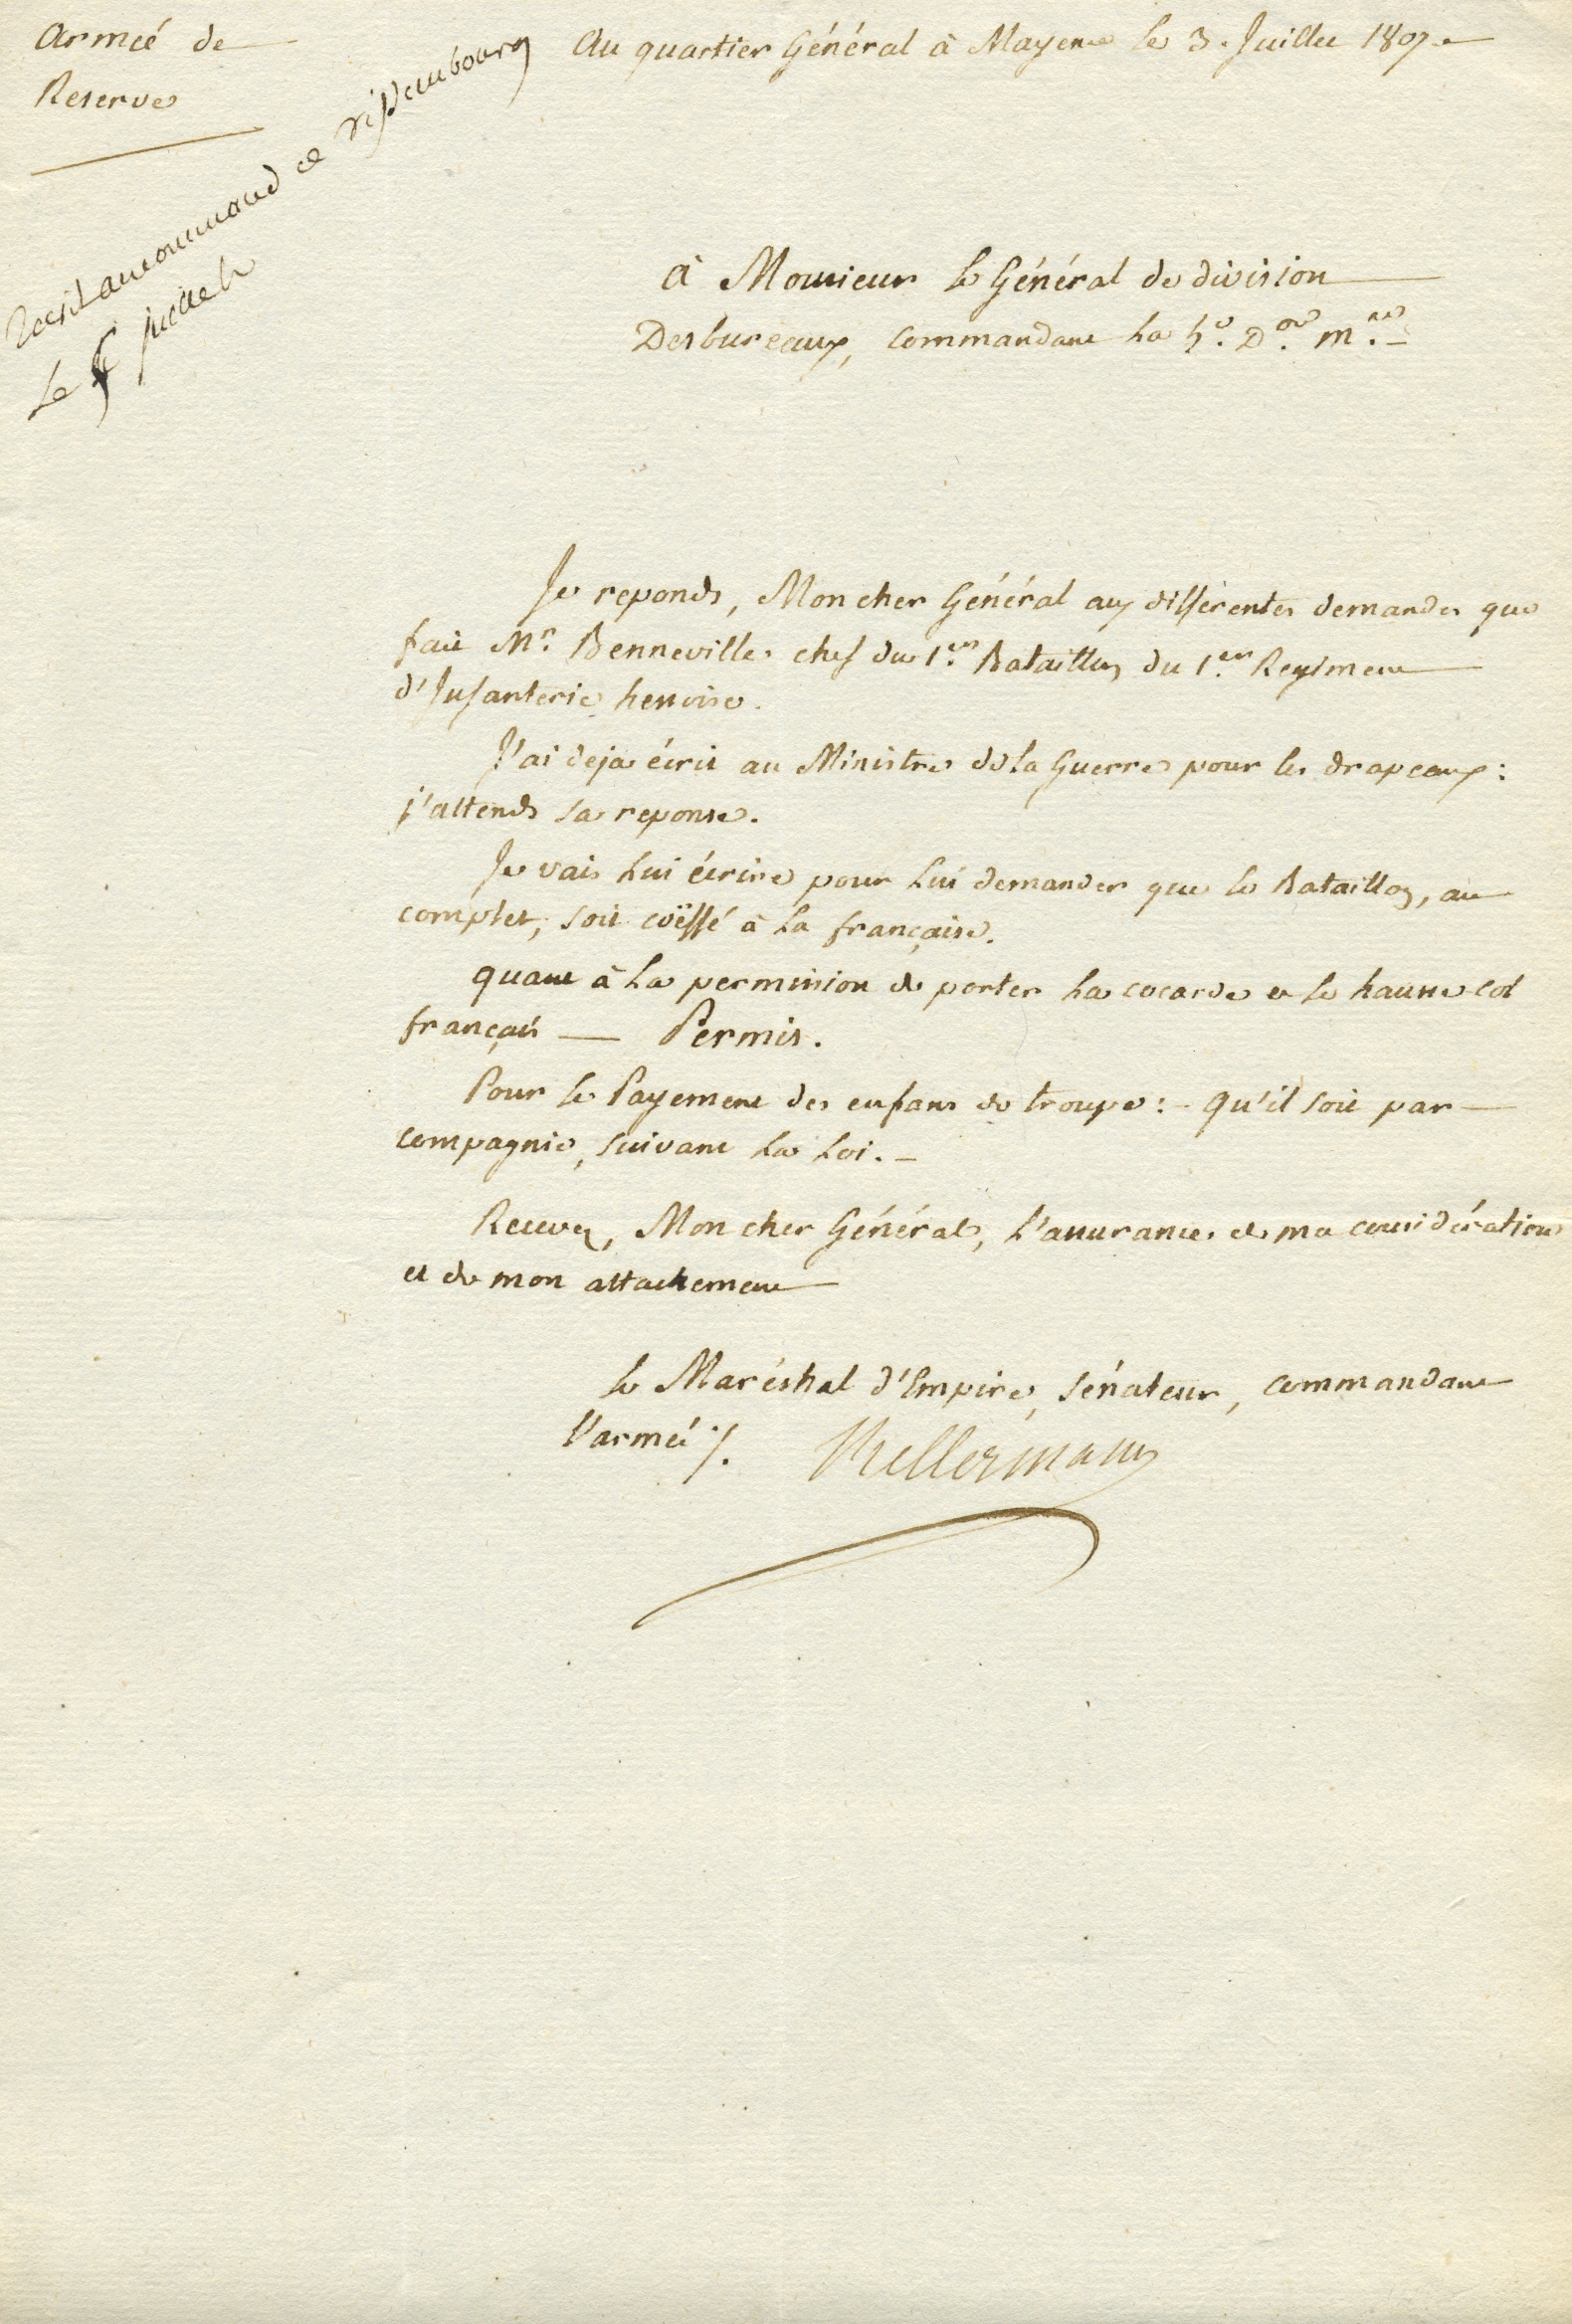 Armée de
Reserve
Au quartier Général à Mayence le 3. Juillet 1807.
le juillet
à Monsieur le Général de division
Desbureaux, commandant la 5.e D.on m.re
Je reponds, Mon cher Général aux differentes demandes que
fait Mr. Benneville, chef du 1.er Bataillon du 1.er Regiment
d'Infanterie hessoise.
J'ai deja écrit au Ministre de la Guerre pour les drapeaux:
j'attends sa reponse.
Je vais lui écrire pour lui demander que le Bataillon, au
complet, soit coëffé à la française.
quant à la permission de porter la cocarde et le hausse col
français — Permis.
Pour le Payement des enfans de troupe: - qu'il soit par
compagnie, suivant la loi. -
Recevez, Mon cher Général, l'assurance de ma considération
et de mon attachement
le Maréchal d'Empire, sénateur, commandant
l'armée ./. Kellermann